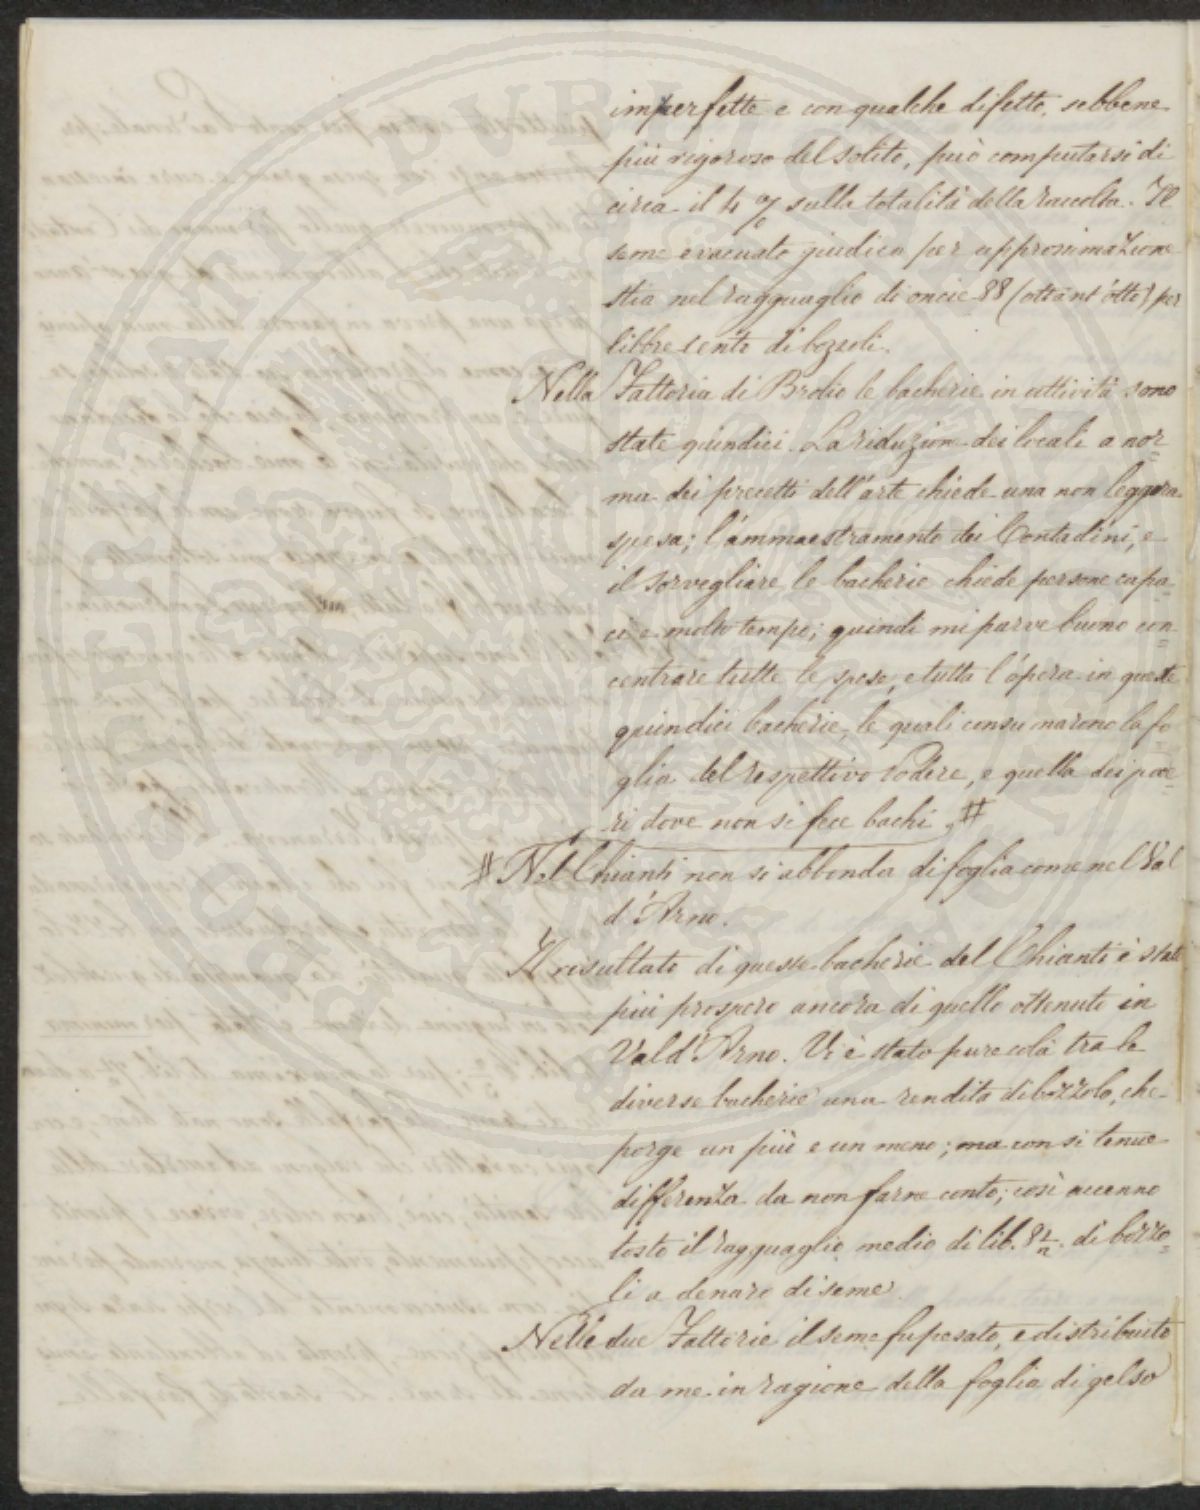 imperfette e con qualche difetto, sebbene
più rigoroso del solito, può computarsi di
circa il 4 % sulla totalità della raccolta. Il
seme evacuato giudico per approssimazione
stia nel ragguaglio di oncie 88 (ottant'otto) per
libbre cento di bozzoli.
Nella Fattoria di Brolio le bacherie in attività sono
state quindici. La riduzione dei locali a nor=
ma dei precetti dell'arte chiede una non leggera
spesa; l'ammaestramento dei Contadini, e
il sorvegliare le bacherie chiede persone capa=
ci e molto tempo; quindi mi parve buono con=
centrare tutte le spese, e tutta l'opera in queste
quindici bacherie, le quali consumarono la fo=
glia del respettivo Podere, e quella dei pode=
ri dove non si fece bachi. #
# Nel Chianti non si abbonda di foglia come nel Val
d'Arno.
Il resultato di queste bacherie del Chianti è stato
più prospero ancora di quello ottenuto in
Val d'Arno. Vi è stato pure colà tra le
diverse bacherie una rendita di bozzolo, che
porge un più e un meno; ma con si tenue
differenza da non farne conto; così accenno
tosto il ragguaglio medio di lib. 8 di bozzo=
li a denaro di seme.
Nelle due Fattorie il seme fu pesato, e distribuito
da me in ragione della foglia di gelso